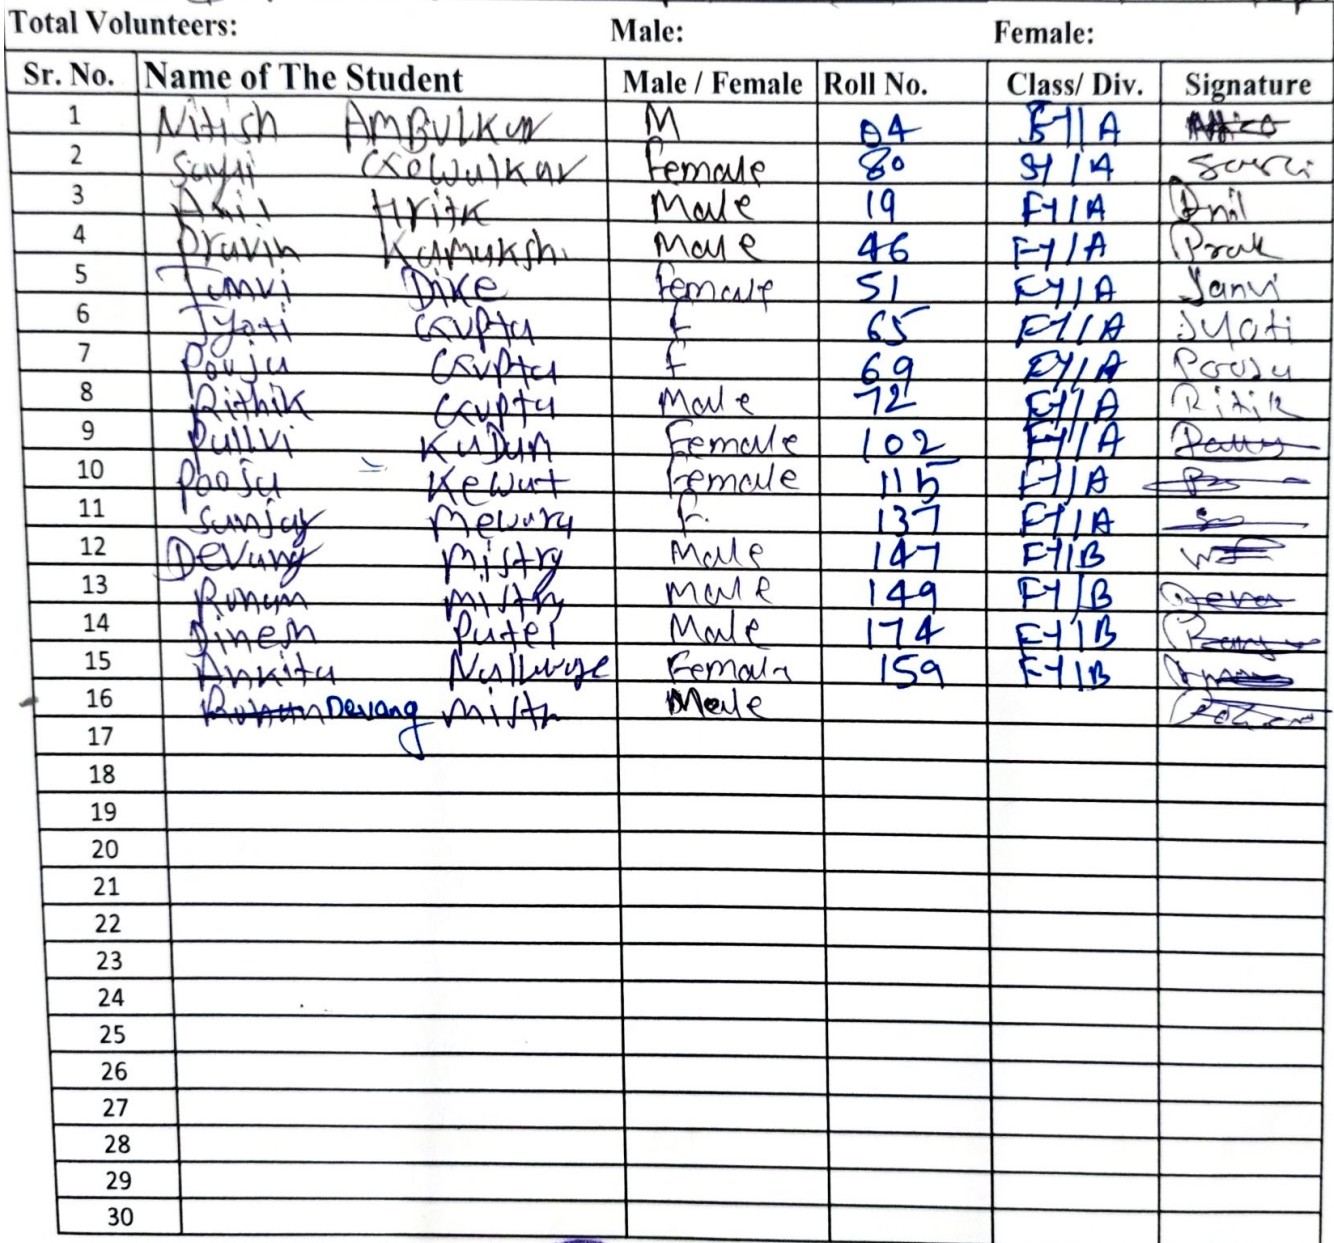 Total Volunteers: Male: Female:
Sr. No. Name of The Student Male / Female Roll No. Class/ Div. Signature
1 Nitish AMBULKAR M 04 FY/A
2 Sayli Gowalkar Female 80 SY/A
3 Anil Hritk Male 19 FY/A Anil
4 Pravin Kamukshi Male 46 FY/A Prak
5 Janvi Dike Female 51 FY/A Janvi
6 Jyoti Gupta F 65 FY/A Jyoti
7 Pooja Gupta F 69 FY/A Pooja
8 Rithik Gupta Male 72 FY/A Ritik
9 Pallvi Kadam Female 102 FY/A
10 Pooja Kewat Female 115 FY/A
11 Sanjay Mewara F. 137 FY/A
12 Devang Mistry Male 147 FY/B
13 Ronam Mistry Male 149 FY/B
14 Dinesh Patel Male 174 FY/B
15 Ankita Female 159 FY/B
16 Devang Mistr Male
17
18
19
20
21
22
23
24
25
26
27
28
29
30